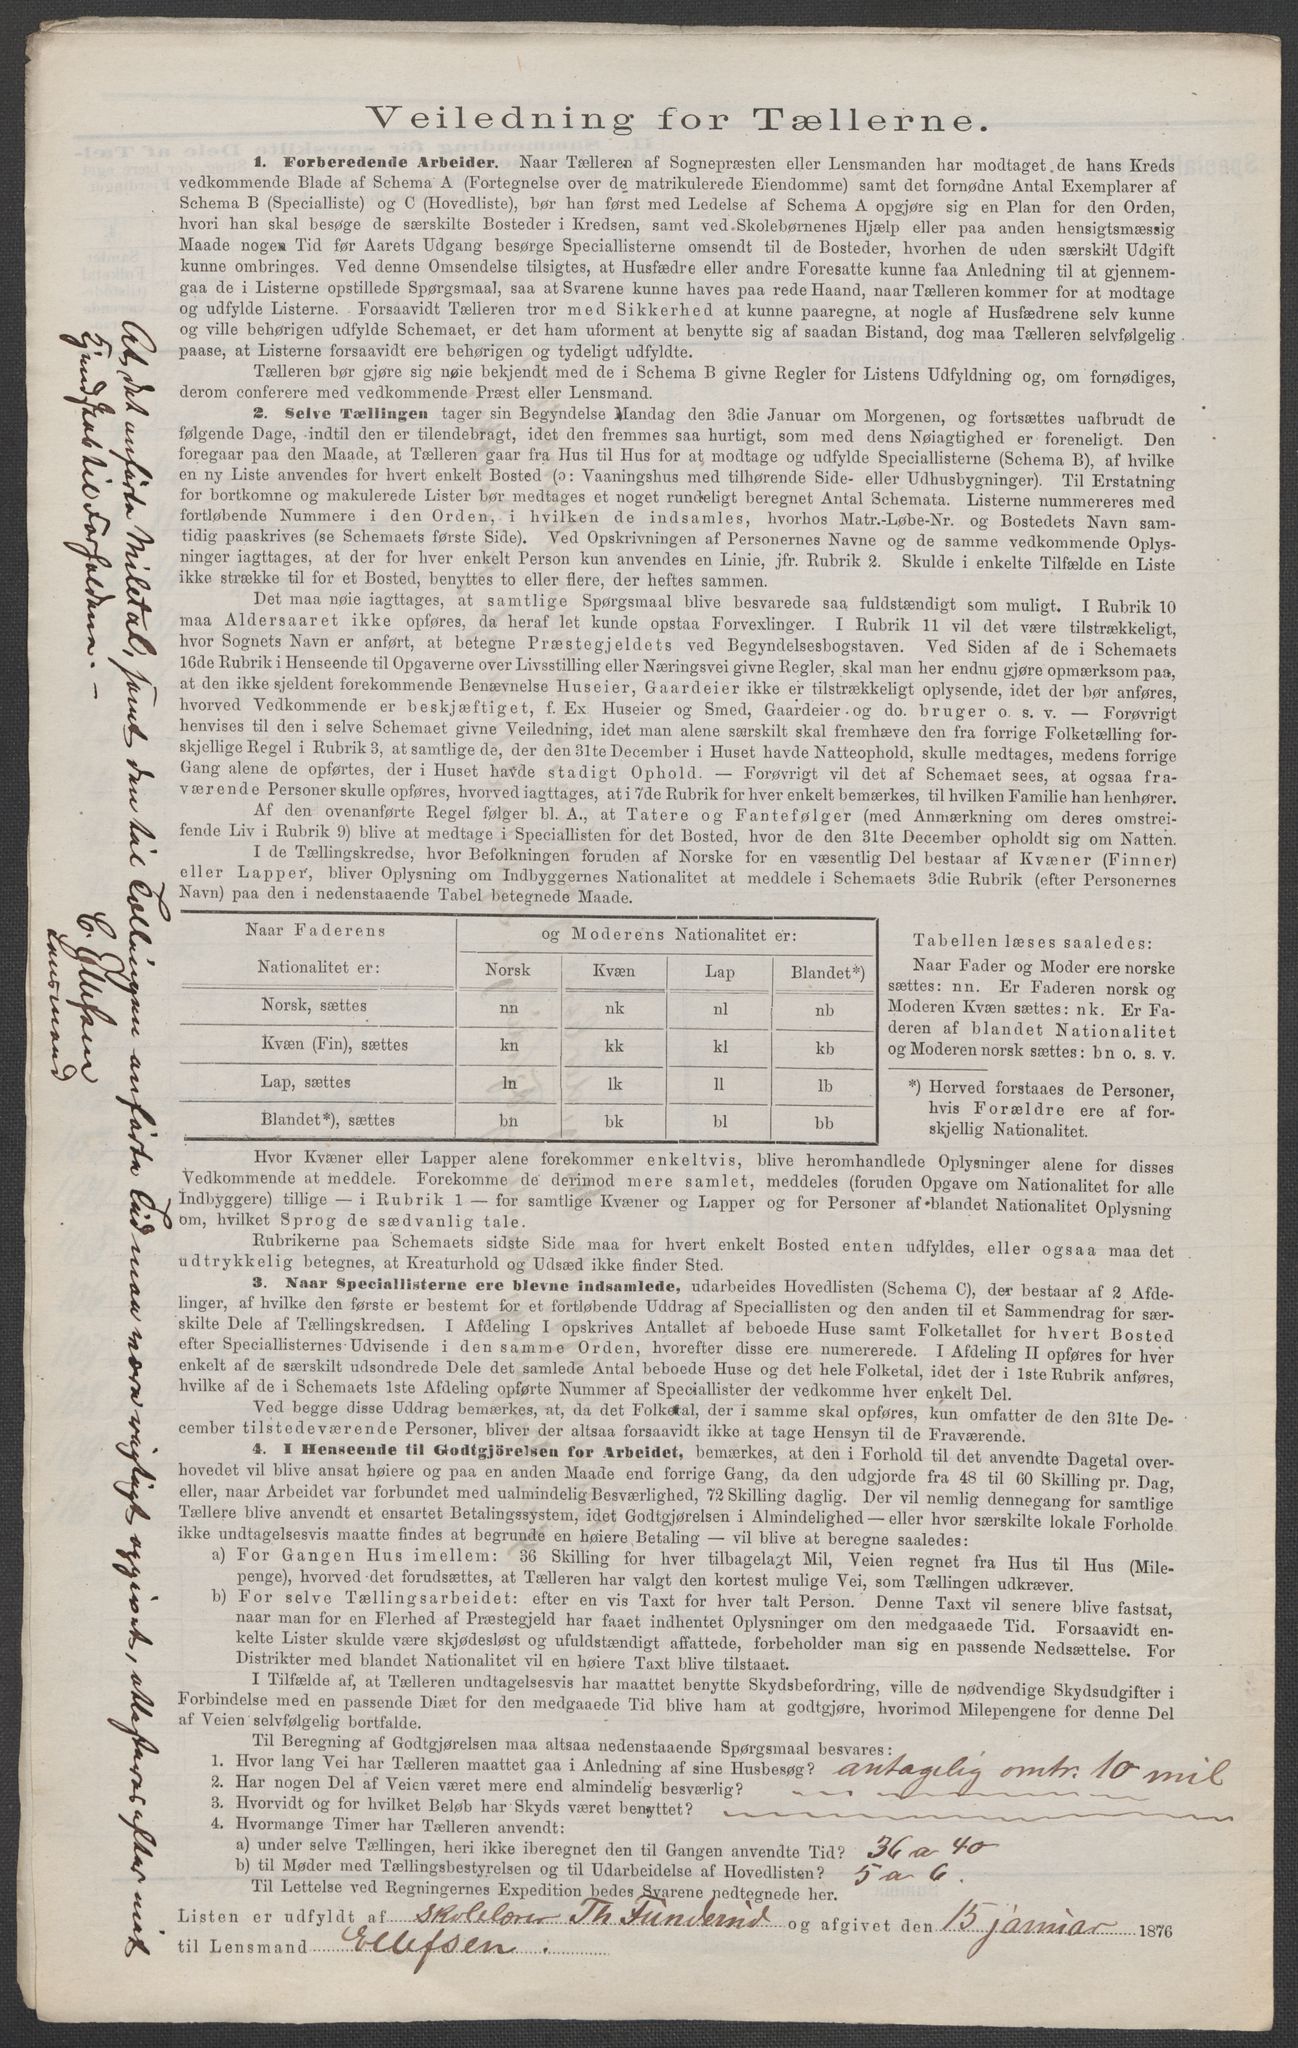 Veiledning for Tællerne.
1. Forberedende Arbeider. Naar Tælleren af Sognepræsten eller Lensmanden har modtaget de hans Kreds
vedkommende Blade af Schema A (Fortegnelse over de matrikulerede Eiendomme) samt det fornødne Antal Exemplarer af
Schema B (Specialliste) og C (Hovedliste), bør han først med Ledelse af Schema A opgjøre sig en Plan for den Orden,
hvori han skal besøge de særskilte Bosteder i Kredsen, samt ved Skolebørnenes Hjælp eller paa anden hensigtsmæssig
Maade nogen Tid før Aarets Udgang besørge Speciallisterne omsendt til de Bosteder, hvorhen de uden særskilt Udgift
kunne ombringes. Ved denne Omsendelse tilsigtes, at Husfædre eller andre Foresatte kunne faa Anledning til at gjennem-
gaa de i Listerne opstillede Spørgsmaal, saa at Svarene kunne haves paa rede Haand, naar Tælleren kommer for at modtage
og udfylde Listerne. Forsaavidt Tælleren tror med Sikkerhed at kunne paaregne, at nogle af Husfædrene selv kunne
og ville behørigen udfylde Schemaet, er det ham uforment at benytte sig af saadan Bistand, dog maa Tælleren selvfølgelig
paase, at Listerne forsaavidt ere behørigen og tydeligt udfyldte.
Tælleren bør gjøre sig nøie bekjendt med de i Schema B givne Regler for Listens Udfyldning og, om fornødiges,
derom conferere med vedkommende Præst eller Lensmand.
2. Selve Tællingen tager sin Begyndelse Mandag den 3die Januar om Morgenen, og fortsættes uafbrudt de
følgende Dage, indtil den er tilendebragt, idet den fremmes saa hurtigt, som med dens Nøiagtighed er foreneligt. Den
foregaar paa den Maade, at Tælleren gaar fra Hus til Hus for at modtage og udfylde Speciallisterne (Schema B), af hvilke
en ny Liste anvendes for hvert enkelt Bosted (ɔ: Vaaningshus med tilhørende Side- eller Udhusbygninger). Til Erstatning
for bortkomne og makulerede Lister bør medtages et noget rundeligt beregnet Antal Schemata. Listerne nummereres med
fortløbende Nummere i den Orden, i hvilken de indsamles, hvorhos Matr.-Løbe-Nr. og Bostedets Navn sam-
tidig paaskrives (se Schemaets første Side). Ved Opskrivningen af Personernes Navne og de samme vedkommende Oplys-
ninger iagttages, at der for hver enkelt Person kun anvendes en Linie, jfr. Rubrik 2. Skulde i enkelte Tilfælde en Liste
ikke strække til for et Bosted, benyttes to eller flere, der heftes sammen.
Det maa nøie iagttages, at samtlige Spørgsmaal blive besvarede saa fuldstændigt som muligt. I Rubrik 10
maa Aldersaaret ikke opføres, da heraf let kunde opstaa Forvexlinger. I Rubrik 11 vil det være tilstrækkeligt,
hvor Sognets Navn er anført, at betegne Præstegjeldets ved Begyndelsesbogstaven. Ved Siden af de i Schemaets
16de Rubrik i Henseende til Opgaverne over Livsstilling eller Næringsvei givne Regler, skal man her endnu gjøre opmærksom paa,
at den ikke sjeldent forekommende Benævnelse Huseier, Gaardeier ikke er tilstrækkeligt oplysende, idet der bør anføres,
hvorved Vedkommende er beskjæftiget, f. Ex Huseier og Smed, Gaardeier og do. bruger o. s. v. — Forøvrigt
henvises til den i selve Schemaet givne Veiledning, idet man alene særskilt skal fremhæve den fra forrige Folketælling for-
skjellige Regel i Rubrik 3, at samtlige de, der den 31te December i Huset havde Natteophold, skulle medtages, medens forrige
Gang alene de opførtes, der i Huset havde stadigt Ophold. — Forøvrigt vil det af Schemaet sees, at ogsaa fra-
værende Personer skulle opføres, hvorved iagttages, at i 7de Rubrik for hver enkelt bemærkes, til hvilken Familie han henhører.
Af den ovenanførte Regel følger bl. A., at Tatere og Fantefølger (med Anmærkning om deres omstrei-
fende Liv i Rubrik 9) blive at medtage i Speciallisten for det Bosted, hvor de den 31te December opholdt sig om Natten.
I de Tællingskredse, hvor Befolkningen foruden af Norske for en væsentlig Del bestaar af Kvæner (Finner)
eller Lapper, bliver Oplysning om Indbyggernes Nationalitet at meddele i Schemaets 3die Rubrik (efter Personernes
Navn) paa den i nedenstaaende Tabel betegnede Maade.
Naar Faderens og Moderens Nationalitet er:
Nationalitet er: Norsk Kvæn Lap Blandet*)
Norsk, sættes nn nk nl nb
Kvæn (Fin), sættes kn kk kl kb
Lap, sættes ln lk ll lb
Blandet*), sættes bn bk bl bb
Tabellen læses saaledes:
Naar Fader og Moder ere norske
sættes: nn. Er Faderen norsk og
Moderen Kvæn sættes: nk. Er Fa-
deren af blandet Nationalitet
og Moderen norsk sættes: bn o. s. v.
*) Herved forstaaes de Personer,
hvis Forældre ere af for-
skjellig Nationalitet.
Hvor Kvæner eller Lapper alene forekommer enkeltvis, blive heromhandlede Oplysninger alene for disses
Vedkommende at meddele. Forekomme de derimod mere samlet, meddeles (foruden Opgave om Nationalitet for alle
Indbyggere) tillige — i Rubrik 1 — for samtlige Kvæner og Lapper og for Personer af blandet Nationalitet Oplysning
om, hvilket Sprog de sædvanlig tale.
Rubrikerne paa Schemaets sidste Side maa for hvert enkelt Bosted enten udfyldes, eller ogsaa maa det
udtrykkelig betegnes, at Kreaturhold og Udsæd ikke finder Sted.
3. Naar Speciallisterne ere blevne indsamlede, udarbeides Hovedlisten (Schema C), der bestaar af 2 Afde-
linger, af hvilke den første er bestemt for et fortløbende Uddrag af Speciallisten og den anden til et Sammendrag for sær-
skilte Dele af Tællingskredsen. I Afdeling I opskrives Antallet af beboede Huse samt Folketallet for hvert Bosted
efter Speciallisternes Udvisende i den samme Orden, hvorefter disse ere numererede. I Afdeling II opføres for hver
enkelt af de særskilt udsondrede Dele det samlede Antal beboede Huse og det hele Folketal, idet der i 1ste Rubrik anføres,
hvilke af de i Schemaets 1ste Afdeling opførte Nummer af Speciallister der vedkomme hver enkelt Del.
Ved begge disse Uddrag bemærkes, at, da det Folketal, der i samme skal opføres, kun omfatter de den 31te De-
cember tilstedeværende Personer, bliver der altsaa forsaavidt ikke at tage Hensyn til de Fraværende.
4. I Henseende til Godtgjörelsen for Arbeidet, bemærkes, at den i Forhold til det anvendte Dagetal over-
hovedet vil blive ansat høiere og paa en anden Maade end forrige Gang, da den udgjorde fra 48 til 60 Skilling pr. Dag,
eller, naar Arbeidet var forbundet med ualmindelig Besværlighed, 72 Skilling daglig. Der vil nemlig dennegang for samtlige
Tællere blive anvendt et ensartet Betalingssystem, idet Godtgjørelsen i Almindelighed — eller hvor særskilte lokale Forholde
ikke undtagelsesvis maatte findes at begrunde en høiere Betaling — vil blive at beregne saaledes:
a) For Gangen Hus imellem: 36 Skilling for hver tilbagelagt Mil, Veien regnet fra Hus til Hus (Mile-
penge), hvorved det forudsættes, at Tælleren har valgt den kortest mulige Vei, som Tællingen udkræver.
b) For selve Tællingsarbeidet: efter en vis Taxt for hver talt Person. Denne Taxt vil senere blive fastsat,
naar man for en Flerhed af Præstegjeld har faaet indhentet Oplysninger om den medgaaede Tid. Forsaavidt en-
kelte Lister skulde være skjødesløst og ufuldstændigt affattede, forbeholder man sig en passende Nedsættelse. For
Distrikter med blandet Nationalitet vil en høiere Taxt blive tilstaaet.
I Tilfælde af, at Tælleren undtagelsesvis har maattet benytte Skydsbefordring, ville de nødvendige Skydsudgifter i
Forbindelse med en passende Diæt for den medgaaede Tid blive ham at godtgjøre, hvorimod Milepengene for denne Del
af Veien selvfølgelig bortfalde.
Til Beregning af Godtgjørelsen maa altsaa nedenstaaende Spørgsmaal besvares:
1. Hvor lang Vei har Tælleren maattet gaa i Anledning af sine Husbesøg? antagelig omtr. 10 mil
2. Har nogen Del af Veien været mere end almindelig besværlig?
3. Hvorvidt og for hvilket Beløb har Skyds været benyttet?
4. Hvormange Timer har Tælleren anvendt:
a) under selve Tællingen, heri ikke iberegnet den til Gangen anvendte Tid? 36 a 40
b) til Møder med Tællingsbestyrelsen og til Udarbeidelse af Hovedlisten? 5 a 6.
Til Lettelse ved Regningernes Expedition bedes Svarene nedtegnede her.
Listen er udfyldt af skolelærer Th og afgivet den 15 januar 1876
til Lensmand Ellefsen.
At det anførte Miletal, samt den til Tællingen anførte Tid maa være rigtigt opgivet, attesteres efter mit
Kjendskab til Forholdene. —
C. Ellefsen
Lensmand